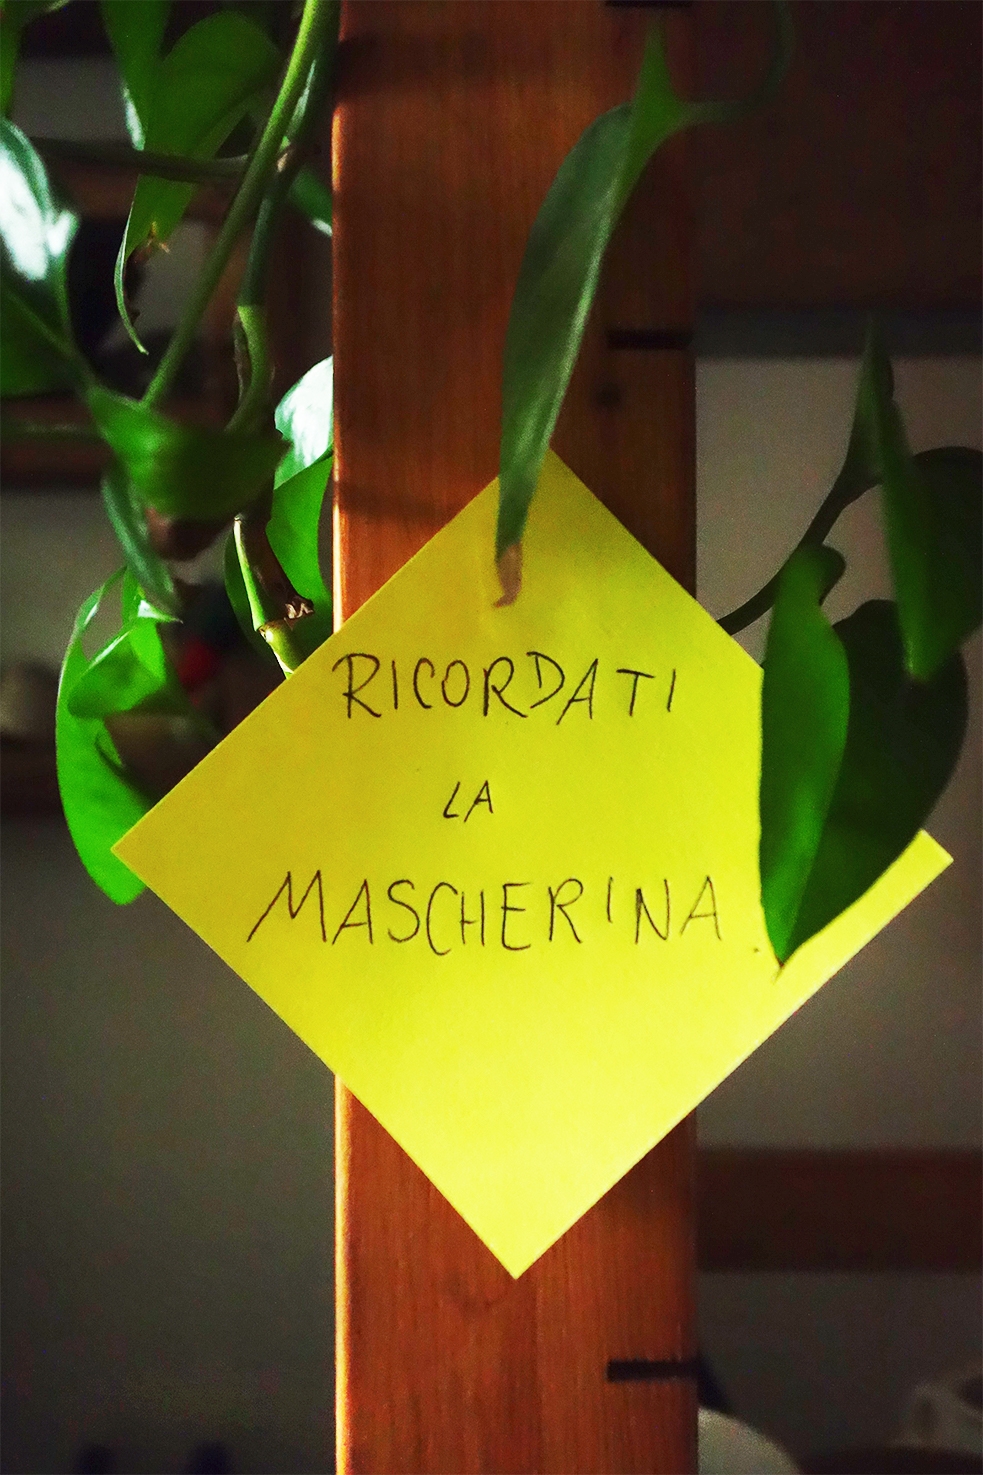 RICORDATI
LA
MASCHERINA